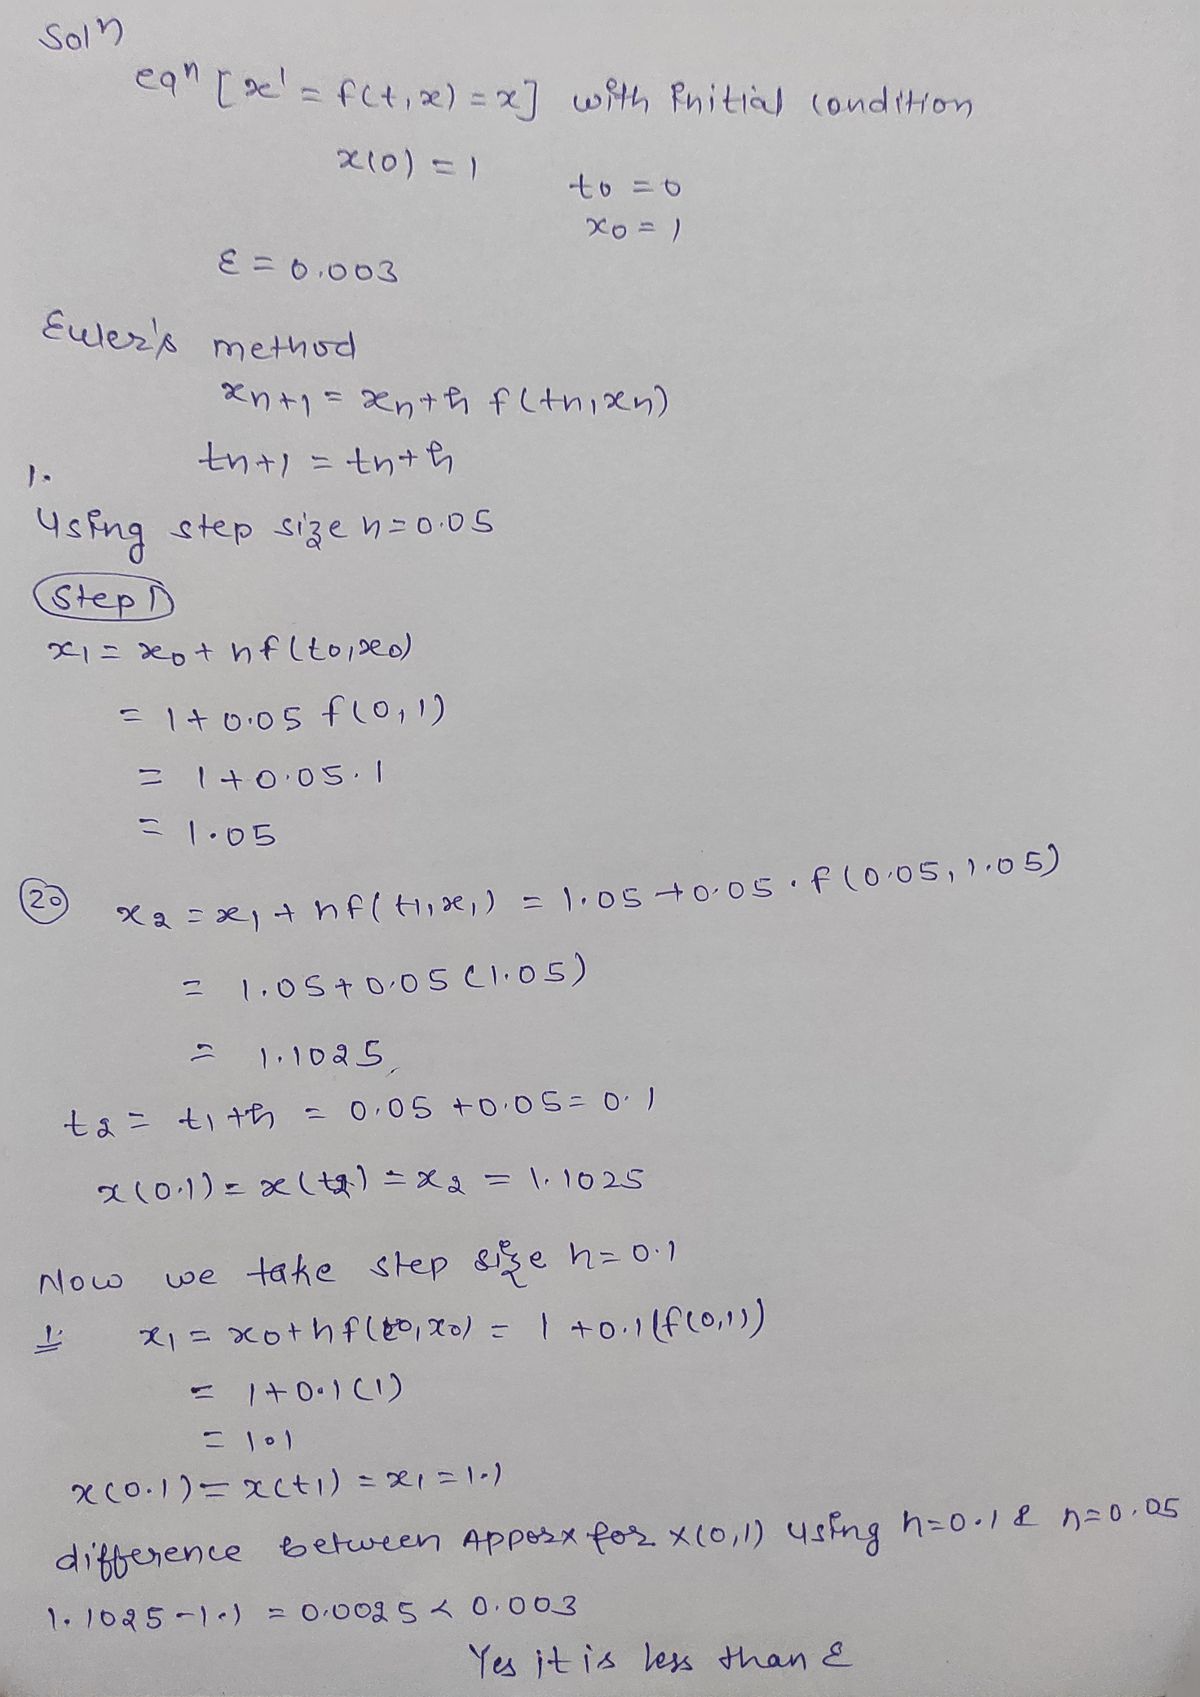 Solⁿ
eqⁿ [x' = f(t,x) = x] with initial condition
x(0) = 1
t0 = 0
x0 = 1
ε = 0.003
Euler's method
xn+1 = xn+h f(tn,xn)
tn+1 = tn+h
1.
Using step size h=0.05
Step 1)
x1 = x0 + hf(t0,x0)
= 1+0.05 f(0,1)
= 1+0.05.1
= 1.05
20 x2 = x1 + hf(t1,x1) = 1.05+0.05.f(0.05,1.05)
= 1.05+0.05(1.05)
= 1.1025
t2 = t1+h = 0.05+0.05=0.1
x(0.1)=x(t2)=x2 = 1.1025
Now we take step size h=0.1
1. x1 = x0+hf(t0,x0) = 1+0.1(f(0,1))
= 1+0.1(1)
= 1.1
x(0.1)=x(t1)=x1=1.1
difference between Apporx for x(0,1) using h=0.1 & h=0.05
1.1025-1.1 = 0.0025 < 0.003
Yes it is less than ε